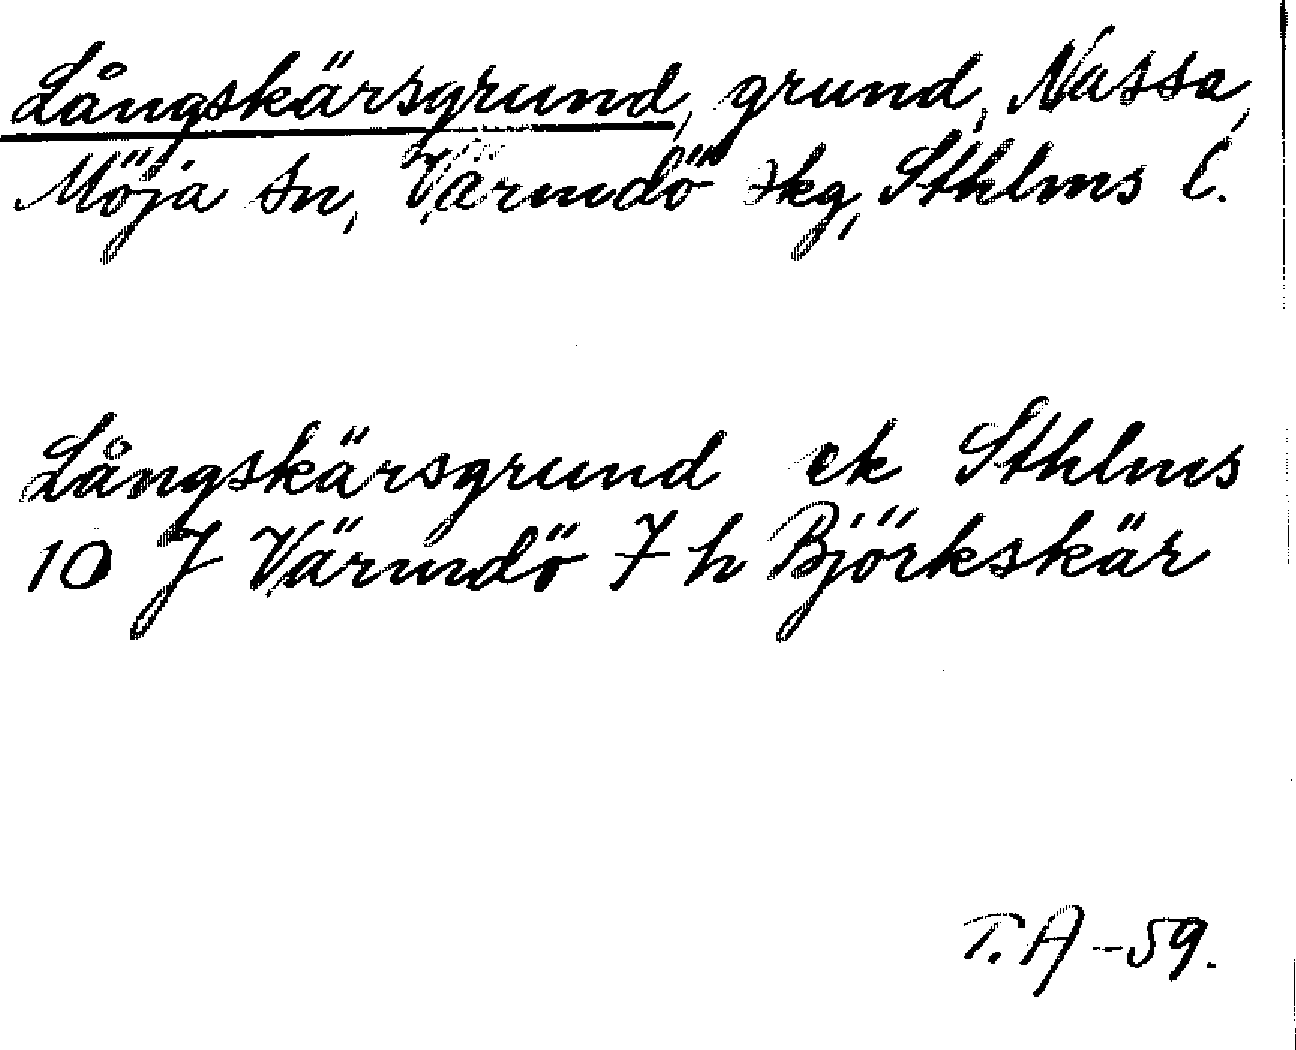 Långskärsgrund, grund, Nassa,
Möja sn, Värmdö skg, Sthlms l.
Långskärsgrund ek Sthlms
10 J Värmdö 7 h Björkskär
T.A -59.